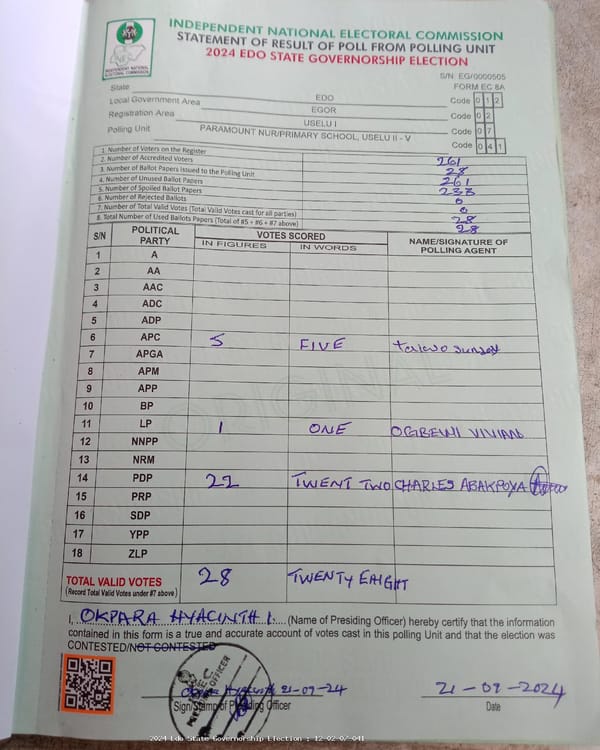 INDEPENDENT NATIONAL ELECTORAL COMMISSION
STATEMENT OF RESULT OF POLL FROM POLLING UNIT
2024 EDO STATE GOVERNORSHIP ELECTION
INDEPENDENT NATIONAL ELECTORAL COMMISSION
S/N EG/0000505
FORM EC 8A
State EDO Code 0 1 2
Local Government Area EGOR Code 0 2
Registration Area USELU I Code 0 7
Polling Unit PARAMOUNT NUR/PRIMARY SCHOOL, USELU II - V Code 0 4 1
1. Number of Voters on the Register 261
2. Number of Accredited Voters 28
3. Number of Ballot Papers Issued to the Polling Unit 261
4. Number of Unused Ballot Papers 233
5. Number of Spoiled Ballot Papers 0
6. Number of Rejected Ballots 0
7. Number of Total Valid Votes (Total Valid Votes cast for all parties) 28
8. Total Number of Used Ballots Papers (Total of #5 + #6 + #7 above) 28
S/N POLITICAL PARTY VOTES SCORED NAME/SIGNATURE OF POLLING AGENT
IN FIGURES IN WORDS
1 A
2 AA
3 AAC
4 ADC
5 ADP
6 APC 5 FIVE Taiwo Sunday
7 APGA
8 APM
9 APP
10 BP
11 LP 1 ONE OGBEWI VIVIAN
12 NNPP
13 NRM
14 PDP 22 TWENT TWO CHARLES ABAKPOYA
15 PRP
16 SDP
17 YPP
18 ZLP
TOTAL VALID VOTES 28 TWENTY EAIGHT
(Record Total Valid Votes under #7 above)
ORIGINAL
I, OKPARA HYACINTH I. (Name of Presiding Officer) hereby certify that the information
contained in this form is a true and accurate account of votes cast in this polling Unit and that the election was
CONTESTED/NOT CONTESTED
Hyacinth 21-09-24 21-09-2024
Sign/Stamp of Presiding Officer Date
2024 Edo State Governorship Election : 12-02-07-041